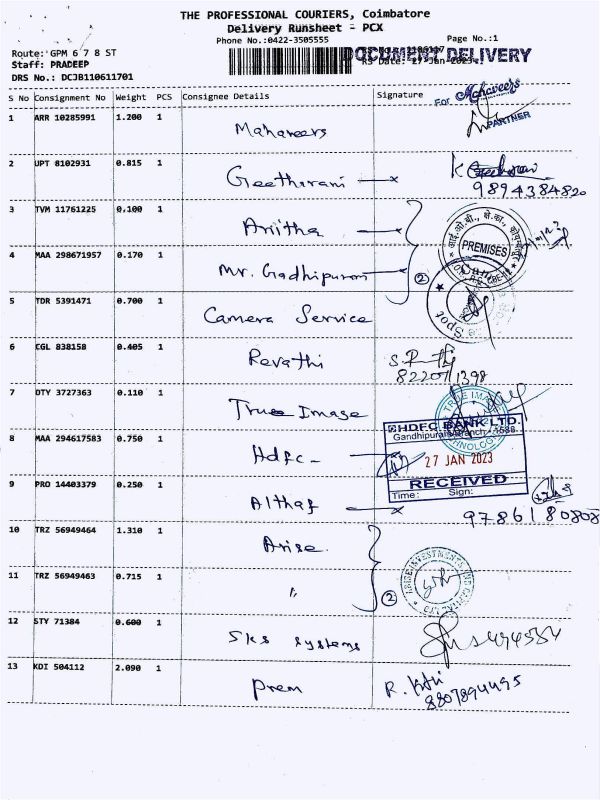 THE PROFESSIONAL COURIERS, Coimbatore
Delivery Runsheet - PCX
Phone No.:0422-3505555
Page No.:1
DOCUMENT DELIVERY
Route: GPM 6 7 8 ST
RS Date: 27-Jan-2023
Staff: PRADEEP
DRS No.: DCJB110611701
S No Consignment No Weight PCS Consignee Details Signature
For Mahaveers
PARTNER
1 ARR 10285991 1.200 1 Mahaveers
2 UPT 8102931 0.815 1 Geethirani
9894384820
3 TVM 11761225 0.100 1 Anitha
PREMISES
4 MAA 298671957 0.170 1 Mr. Gadhipuram
2
5 TDR 5391471 0.700 1 Camera Service
6 CGL 838158 0.405 1 Revathi
82207 1398
7 DTY 3727363 0.110 1 True Image
TRUE IMAGE
TECHNOLOGY
8 MAA 294617583 0.750 1 Hdfc
HDFC BANK LTD.
Gandhipuram Branch - 1588
27 JAN 2023
RECEIVED
Time: Sign:
9 PRO 14403379 0.250 1 Althaf
9786180808
10 TRZ 56949464 1.310 1 Arise
11 TRZ 56949463 0.715 1 "
2
12 STY 71384 0.600 1 SKS Systems
13 KDI 504112 2.090 1 Prem
8807894495